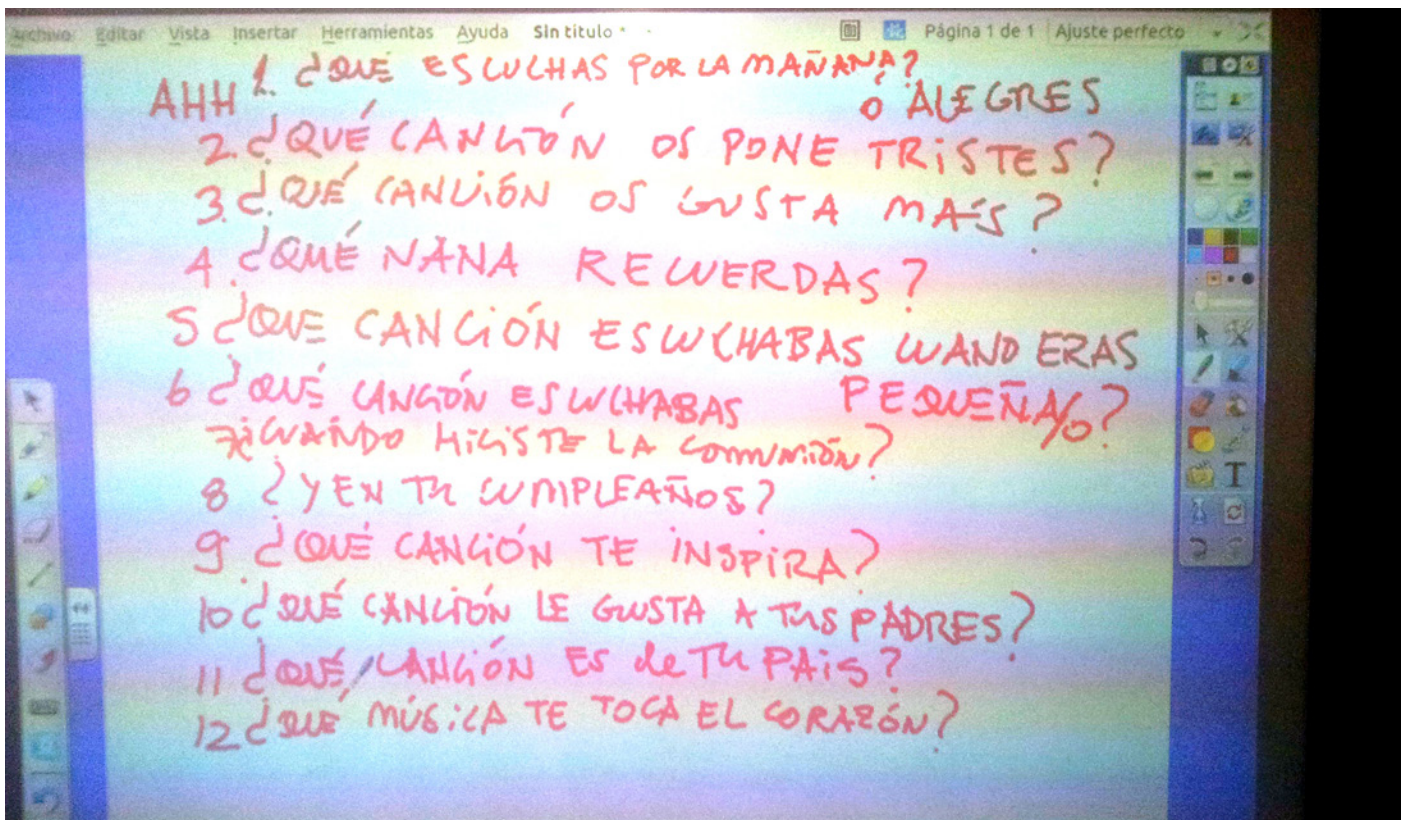 Archivo Editar Vista Insertar Herramientas Ayuda Sin título * Página 1 de 1 Ajuste perfecto
1. ¿QUÉ ESCUCHAS POR LA MAÑANA?
AHH Ó ALEGRES
2. ¿QUÉ CANCIÓN OS PONE TRISTES?
3. ¿QUÉ CANCIÓN OS GUSTA MAS?
4. ¿QUÉ NANA RECUERDAS?
5 ¿QUE CANCIÓN ESCUCHABAS CUAND ERAS
6 ¿QUÉ CANCIÓN ESCUCHABAS PEQUEÑA/O?
7 ¿CUANDO HICISTE LA COMUNIÓN?
8 ¿Y EN TU CUMPLEAÑOS?
9 ¿QUÉ CANCIÓN TE INSPIRA?
10 ¿QUÉ CANCIÓN LE GUSTA A TUS PADRES?
11 ¿QUÉ CANCIÓN ES de TU PAIS?
12 ¿QUÉ MÚSICA TE TOCA EL CORAZÓN?
T